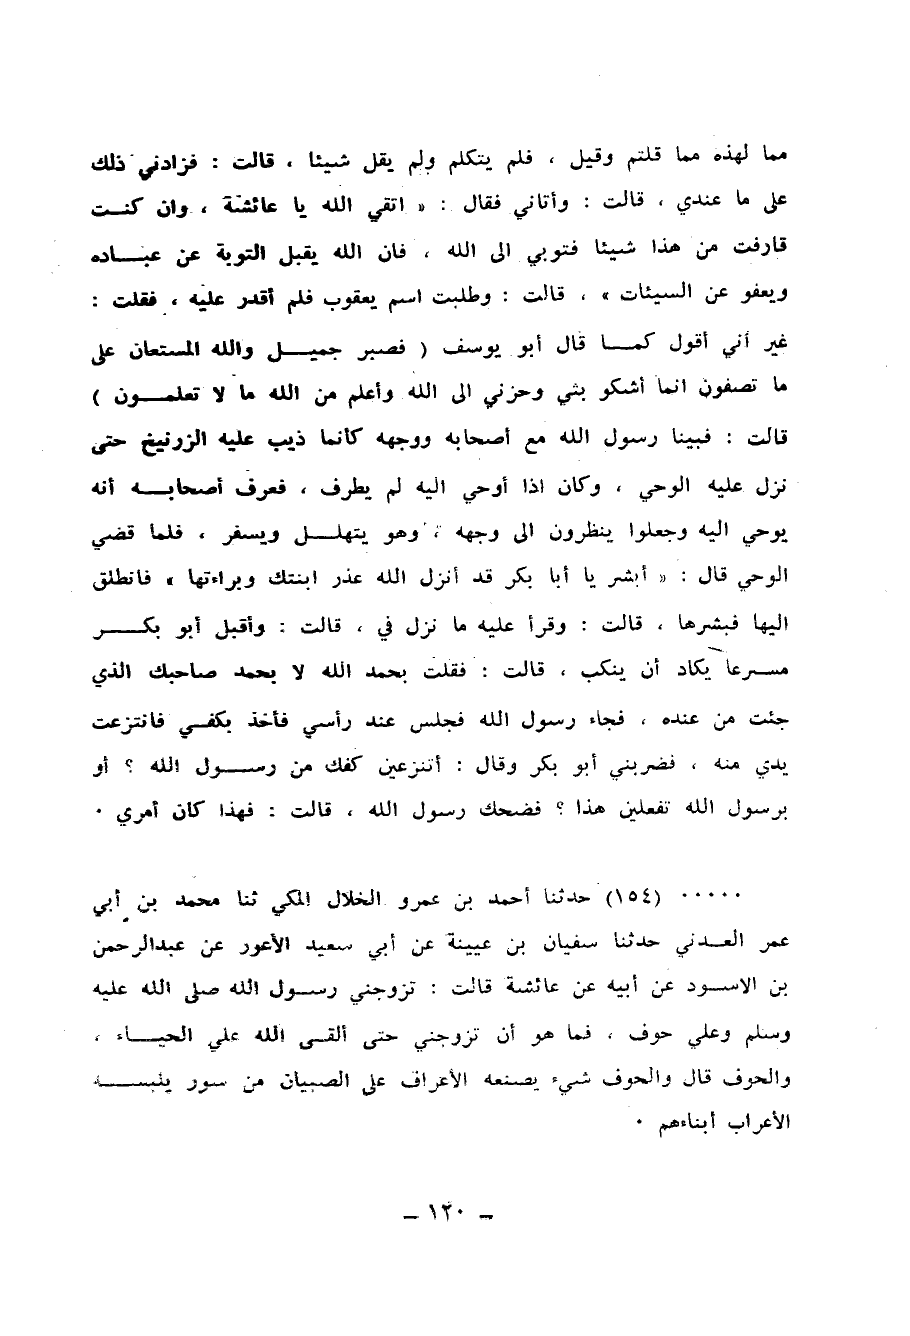 مما لهذه مما قلتم وقيل ، فلم يتكلم ولم يقل شيئا ، قالت : فزادني ذلك
على ما عندي ، قالت : وأتاني فقال : « اتقي الله يا عائشة ، وان كنت
قارفت من هذا شيئا فتوبي الى الله ، فان الله يقبل التوبة عن عباده
ويعفو عن السيئات » ، قالت : وطلبت اسم يعقوب فلم أقدر عليه ، فقلت :
غير أني أقول كما قال أبو يوسف ( فصبر جميل والله المستعان على
ما تصفون انما أشكو بثي وحزني الى الله وأعلم من الله ما لا تعلمون )
قالت : فبينا رسول الله مع أصحابه ووجهه كأنما ذيب عليه الزرنيخ حتى
نزل عليه الوحي ، وكان اذا أوحي اليه لم يطرف ، فعرف أصحابه أنه
يوحي اليه وجعلوا ينظرون الى وجهه ، وهو يتهلل ويسفر ، فلما قضي
الوحي قال : « أبشر يا أبا بكر قد أنزل الله عذر ابنتك وبراءتها » فانطلق
اليها فبشرها ، قالت : وقرأ عليه ما نزل في ، قالت : وأقبل أبو بكر
مسرعا يكاد أن ينكب ، قالت : فقلت بحمد الله لا بحمد صاحبك الذي
جئت من عنده ، فجاء رسول الله فجلس عند رأسي فأخذ بكفي فانتزعت
يدي منه ، فضربني أبو بكر وقال : أتنزعين كفك من رسول الله ؟ أو
برسول الله تفعلين هذا ؟ فضحك رسول الله ، قالت : فهذا كان أمري ٠
٠٠٠٠٠ (١٥٤) حدثنا أحمد بن عمرو الخلال المكي ثنا محمد بن أبي
عمر العدني حدثنا سفيان بن عيينة عن أبي سعيد الأعور عن عبدالرحمن
بن الاسود عن أبيه عن عائشة قالت : تزوجني رسول الله صلى الله عليه
وسلم وعلي حوف ، فما هو أن تزوجني حتى ألقى الله علي الحياء ،
والحوف قال والحوف شيء يصنعه الأعراف على الصبيان من سور يلبسه
الأعراب أبناءهم ٠
– ١٢٠ –